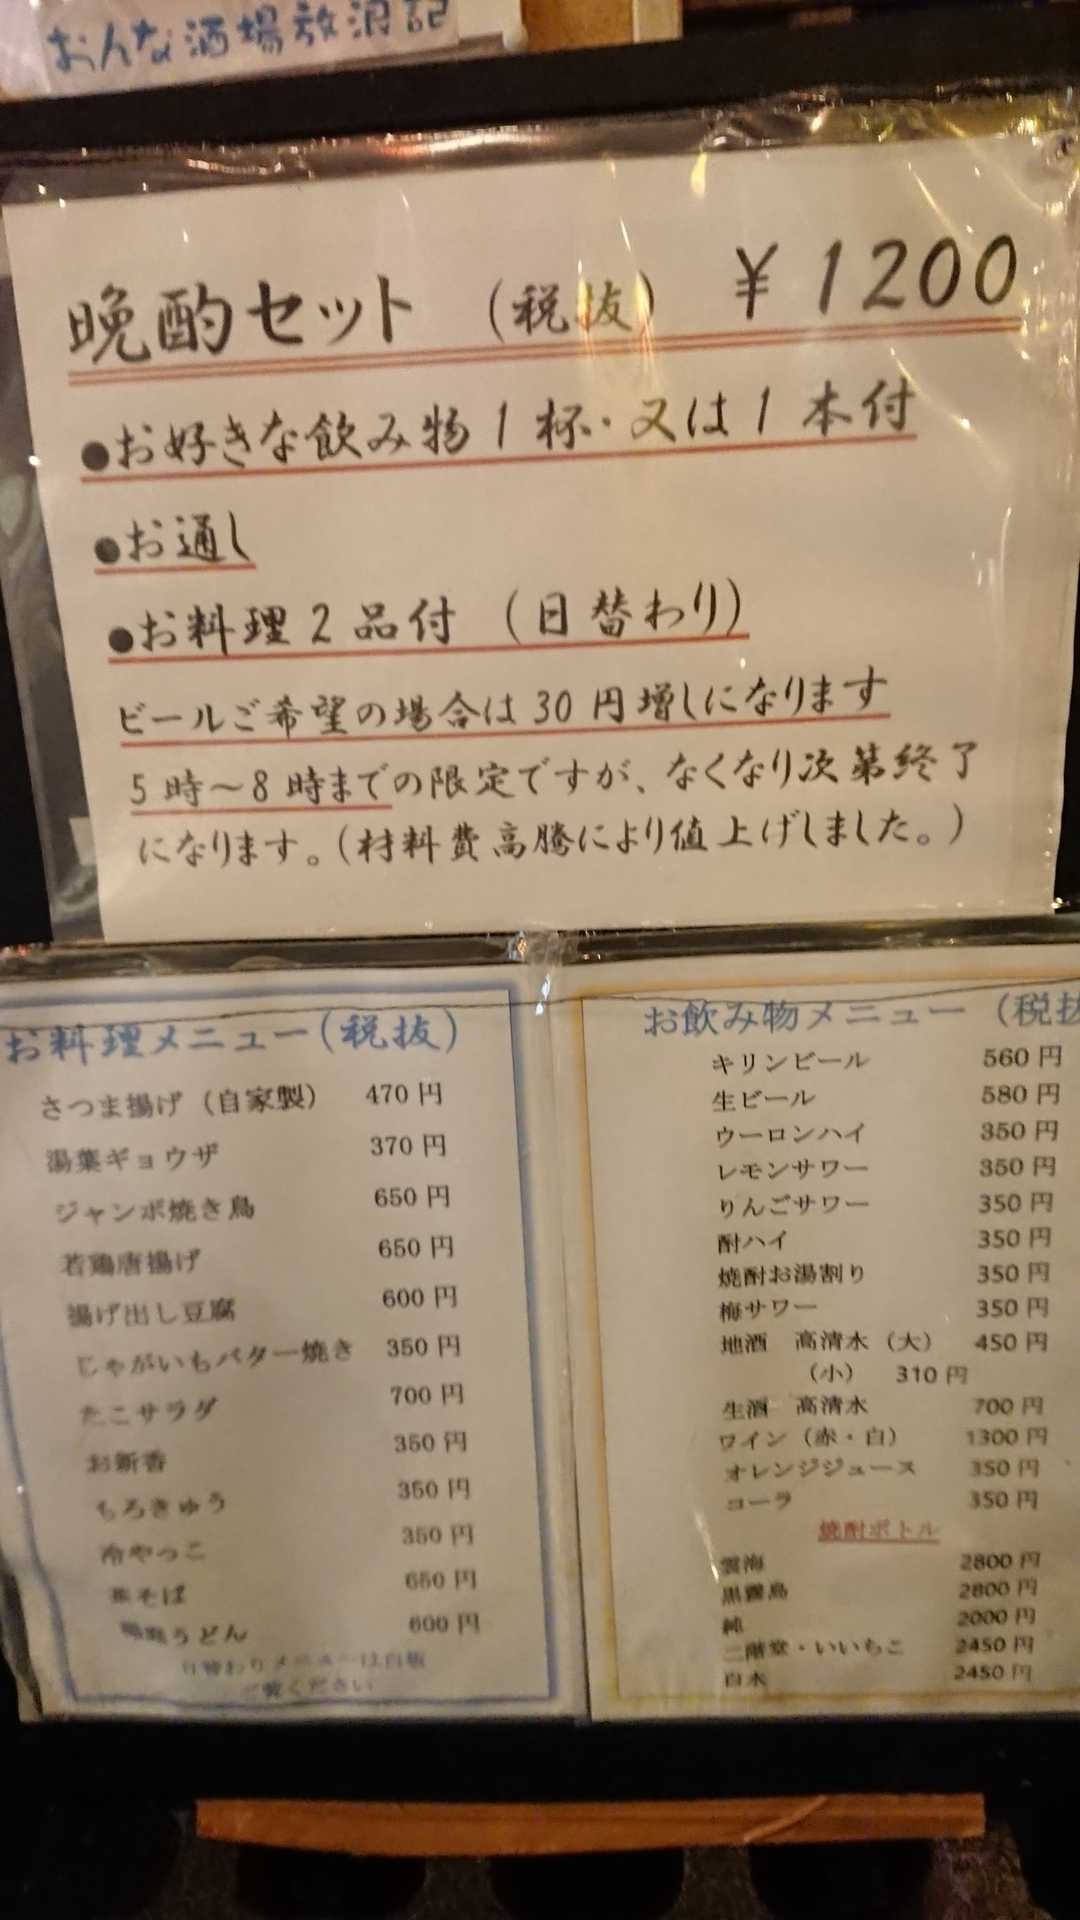 おんな酒場放浪記
晩酌セット (税抜) ¥1200
●お好きな飲み物1杯・又は1本付
●お通し
●お料理2品付 (日替わり)
ビールご希望の場合は30円増しになります
5時〜8時までの限定ですが、なくなり次第終了
になります。(材料費高騰により値上げしました。)
お料理メニュー(税抜)
さつま揚げ(自家製) 470円
湯葉ギョウザ 370円
ジャンボ焼き鳥 650円
若鶏唐揚げ 650円
揚げ出し豆腐 600円
じゃがいもバター焼き 350円
たこサラダ 700円
お新香 350円
もろきゅう 350円
冷やっこ 350円
茶そば 650円
うどん 600円
日替わりメニューは白板
ご覧ください
お飲み物メニュー (税抜
キリンビール 560円
生ビール 580円
ウーロンハイ 350円
レモンサワー 350円
りんごサワー 350円
酎ハイ 350円
焼酎お湯割り 350円
梅サワー 350円
地酒 高清水(大) 450円
(小) 310円
生酒 高清水 700円
ワイン(赤・白) 1300円
オレンジジュース 350円
コーラ 350円
焼酎ボトル
雲海 2800円
黒霧島 2800円
純 2000円
二階堂・いいちこ 2450円
白水 2450円